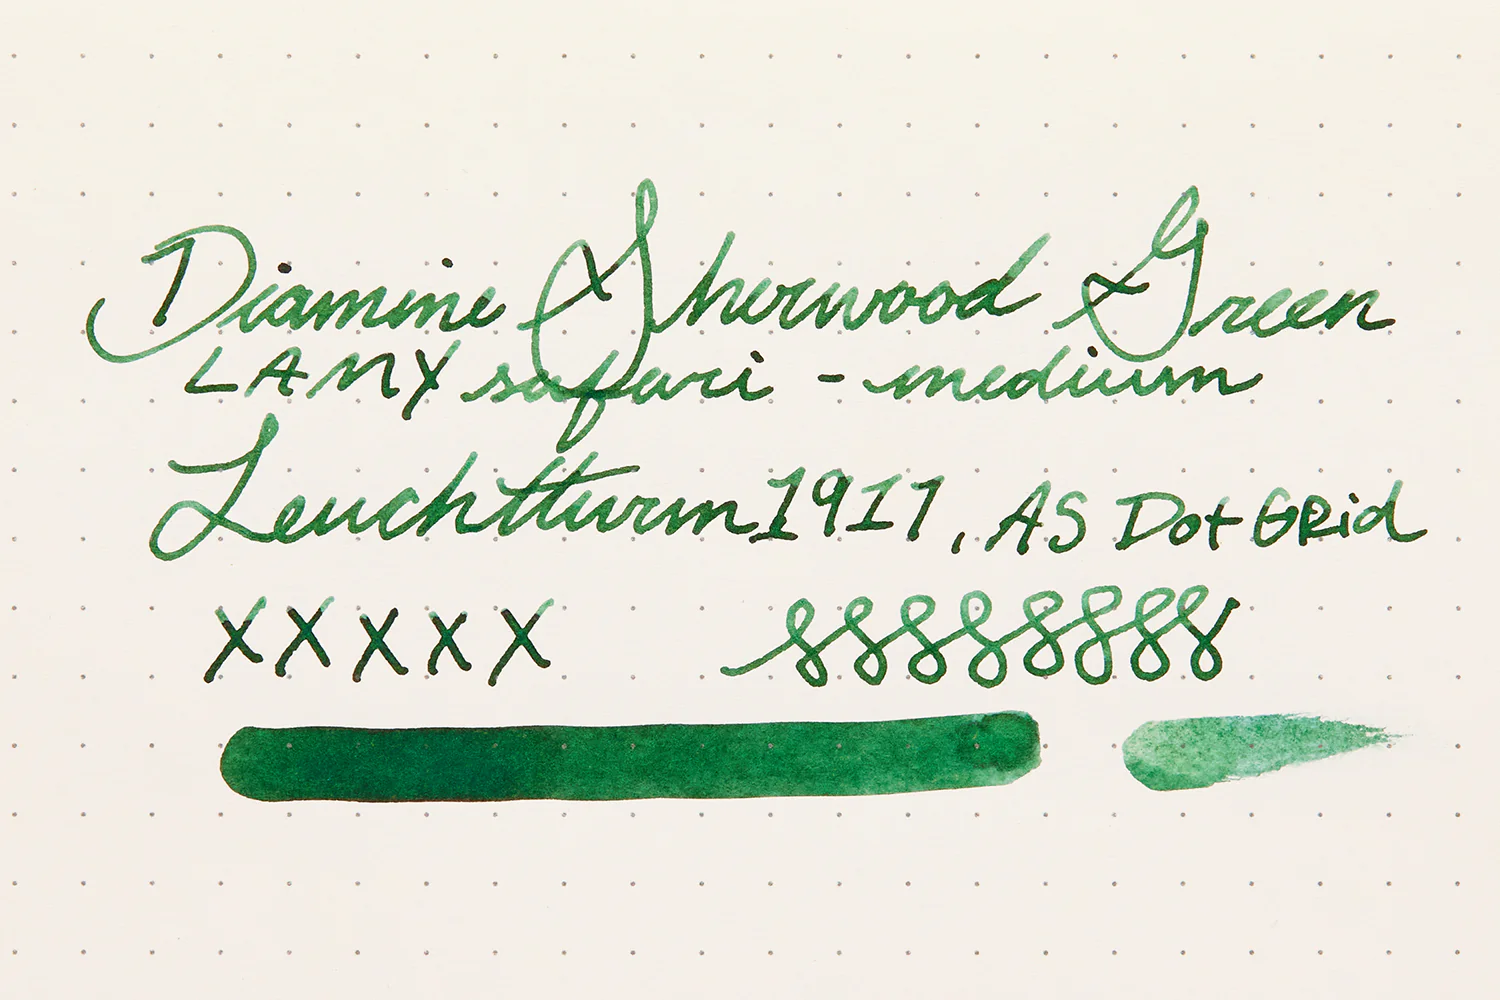 Diamine Sherwood Green
LAMY safari - medium
Leuchtturm1917, A5 Dot Grid
XXXXX